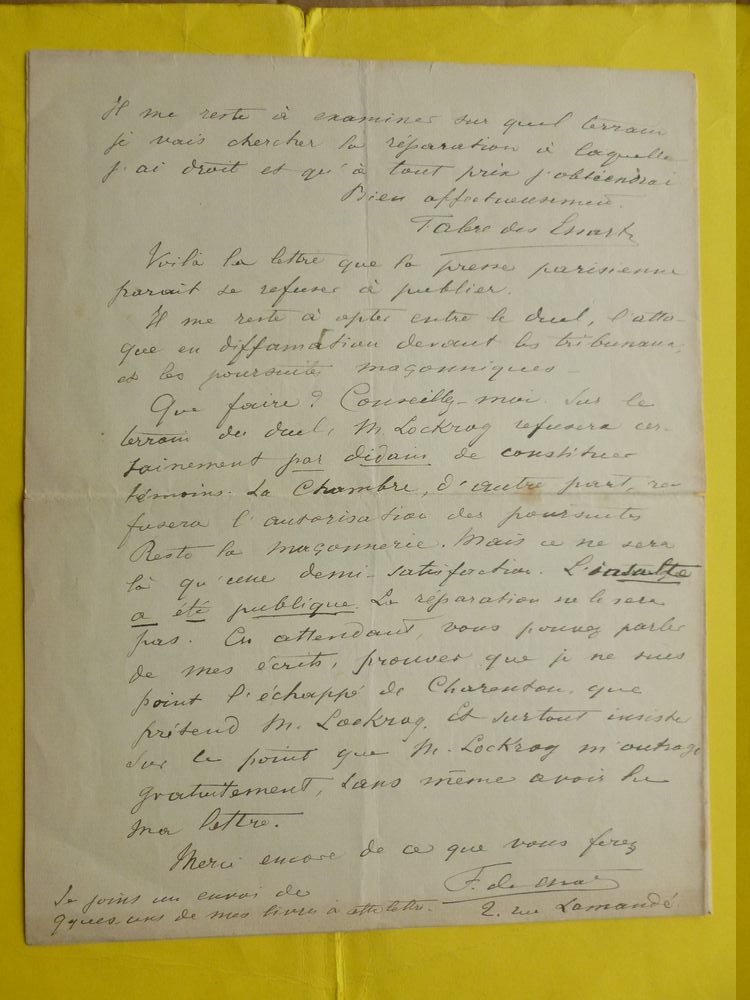 Il me reste à examiner sur quel terrain
je vais chercher la réparation à laquelle
j'ai droit et qu'à tout prix j'obtiendrai
Bien affectueusement.
Fabre des Essarts
Voilà la lettre que la presse parisienne
parait se refuser à publier.
Il me reste à opter entre le duel, l'atta-
que en diffamation devant les tribunaux,
et les poursuites maçonniques –
Que faire ? Conseillez-moi. Sur le
terrain du duel, M. Lockroy refusera cer-
tainement par dédain de constituer
témoins. La Chambre, d'autre part, re-
fusera l'autorisation des poursuites
Reste la maçonnerie. Mais ce ne sera
là qu'une demi-satisfaction. L'insulte
a été publique. La réparation ne le sera
pas. En attendant, vous pouvez parler
de mes écrits, prouver que je ne suis
point l'échappé de Charenton que
prétend M. Lockroy. Et surtout insister
sur le point que M. Lockroy m'outrage
gratuitement, sans même avoir lu
ma lettre.
Merci encore de ce que vous ferez
F. des Essarts
2. rue Lamandé
Je joins un envoi de
qques uns de mes livres à cette lettre.